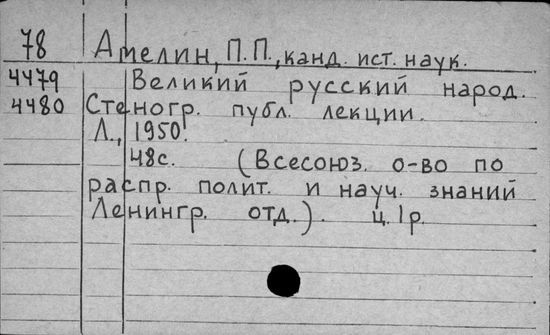 78 Амелин, П.П., канд. ист. наук.
4479 Великий русский народ.
4480 Стеногр. публ. лекции.
Л., 1950.
48с. (Всесоюз. о-во по
распр. полит. и науч. знаний
Ленингр. отд.). ц. 1р.